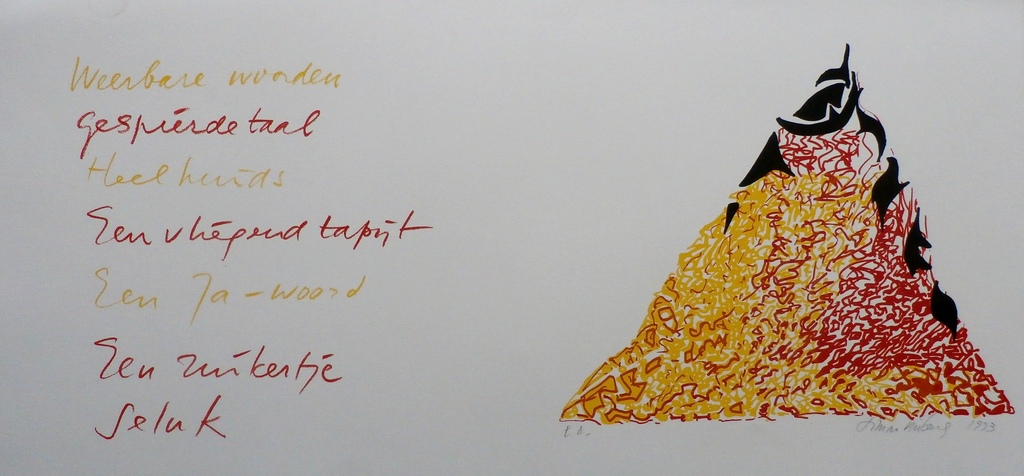 Weerbare woorden
gespierde taal
Heelhuids
Een vliegend tapijt
Een Ja-woord
Een zuikertje
Seluk
1993